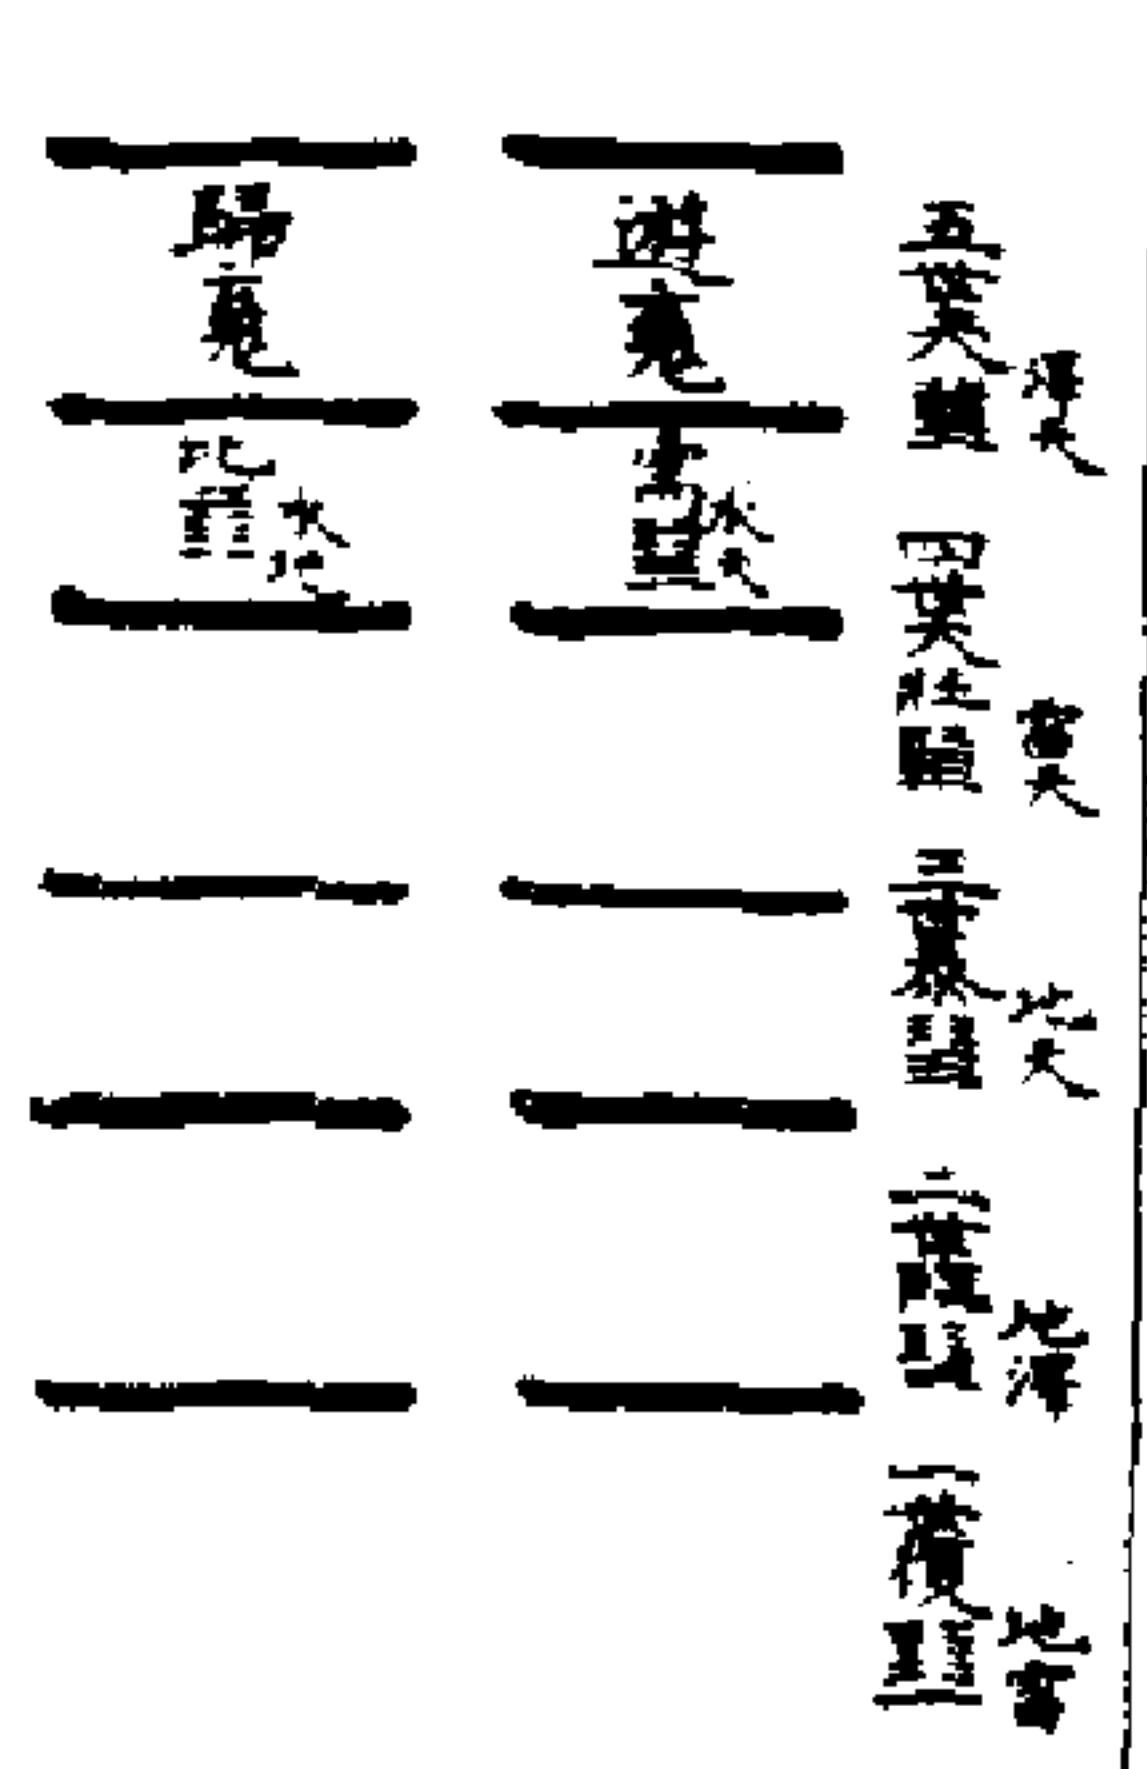 五世夬
澤天
四世大壯
雷天
三世泰
地天
二世臨
地澤
一世復
地雷
遊魂
需
水天
歸魂
比
水地